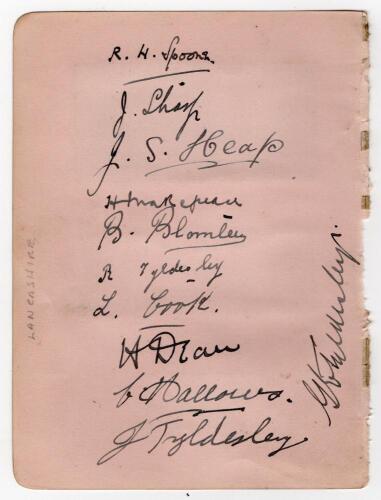 R. H. Spooner
J. Sharp
J. S. Heap
H Makepeace
B. Blomley
R Tyldesley
L. Cook.
H Dean
C Hallows.
J Tyldesley
LANCASHIRE
Tyldesley.